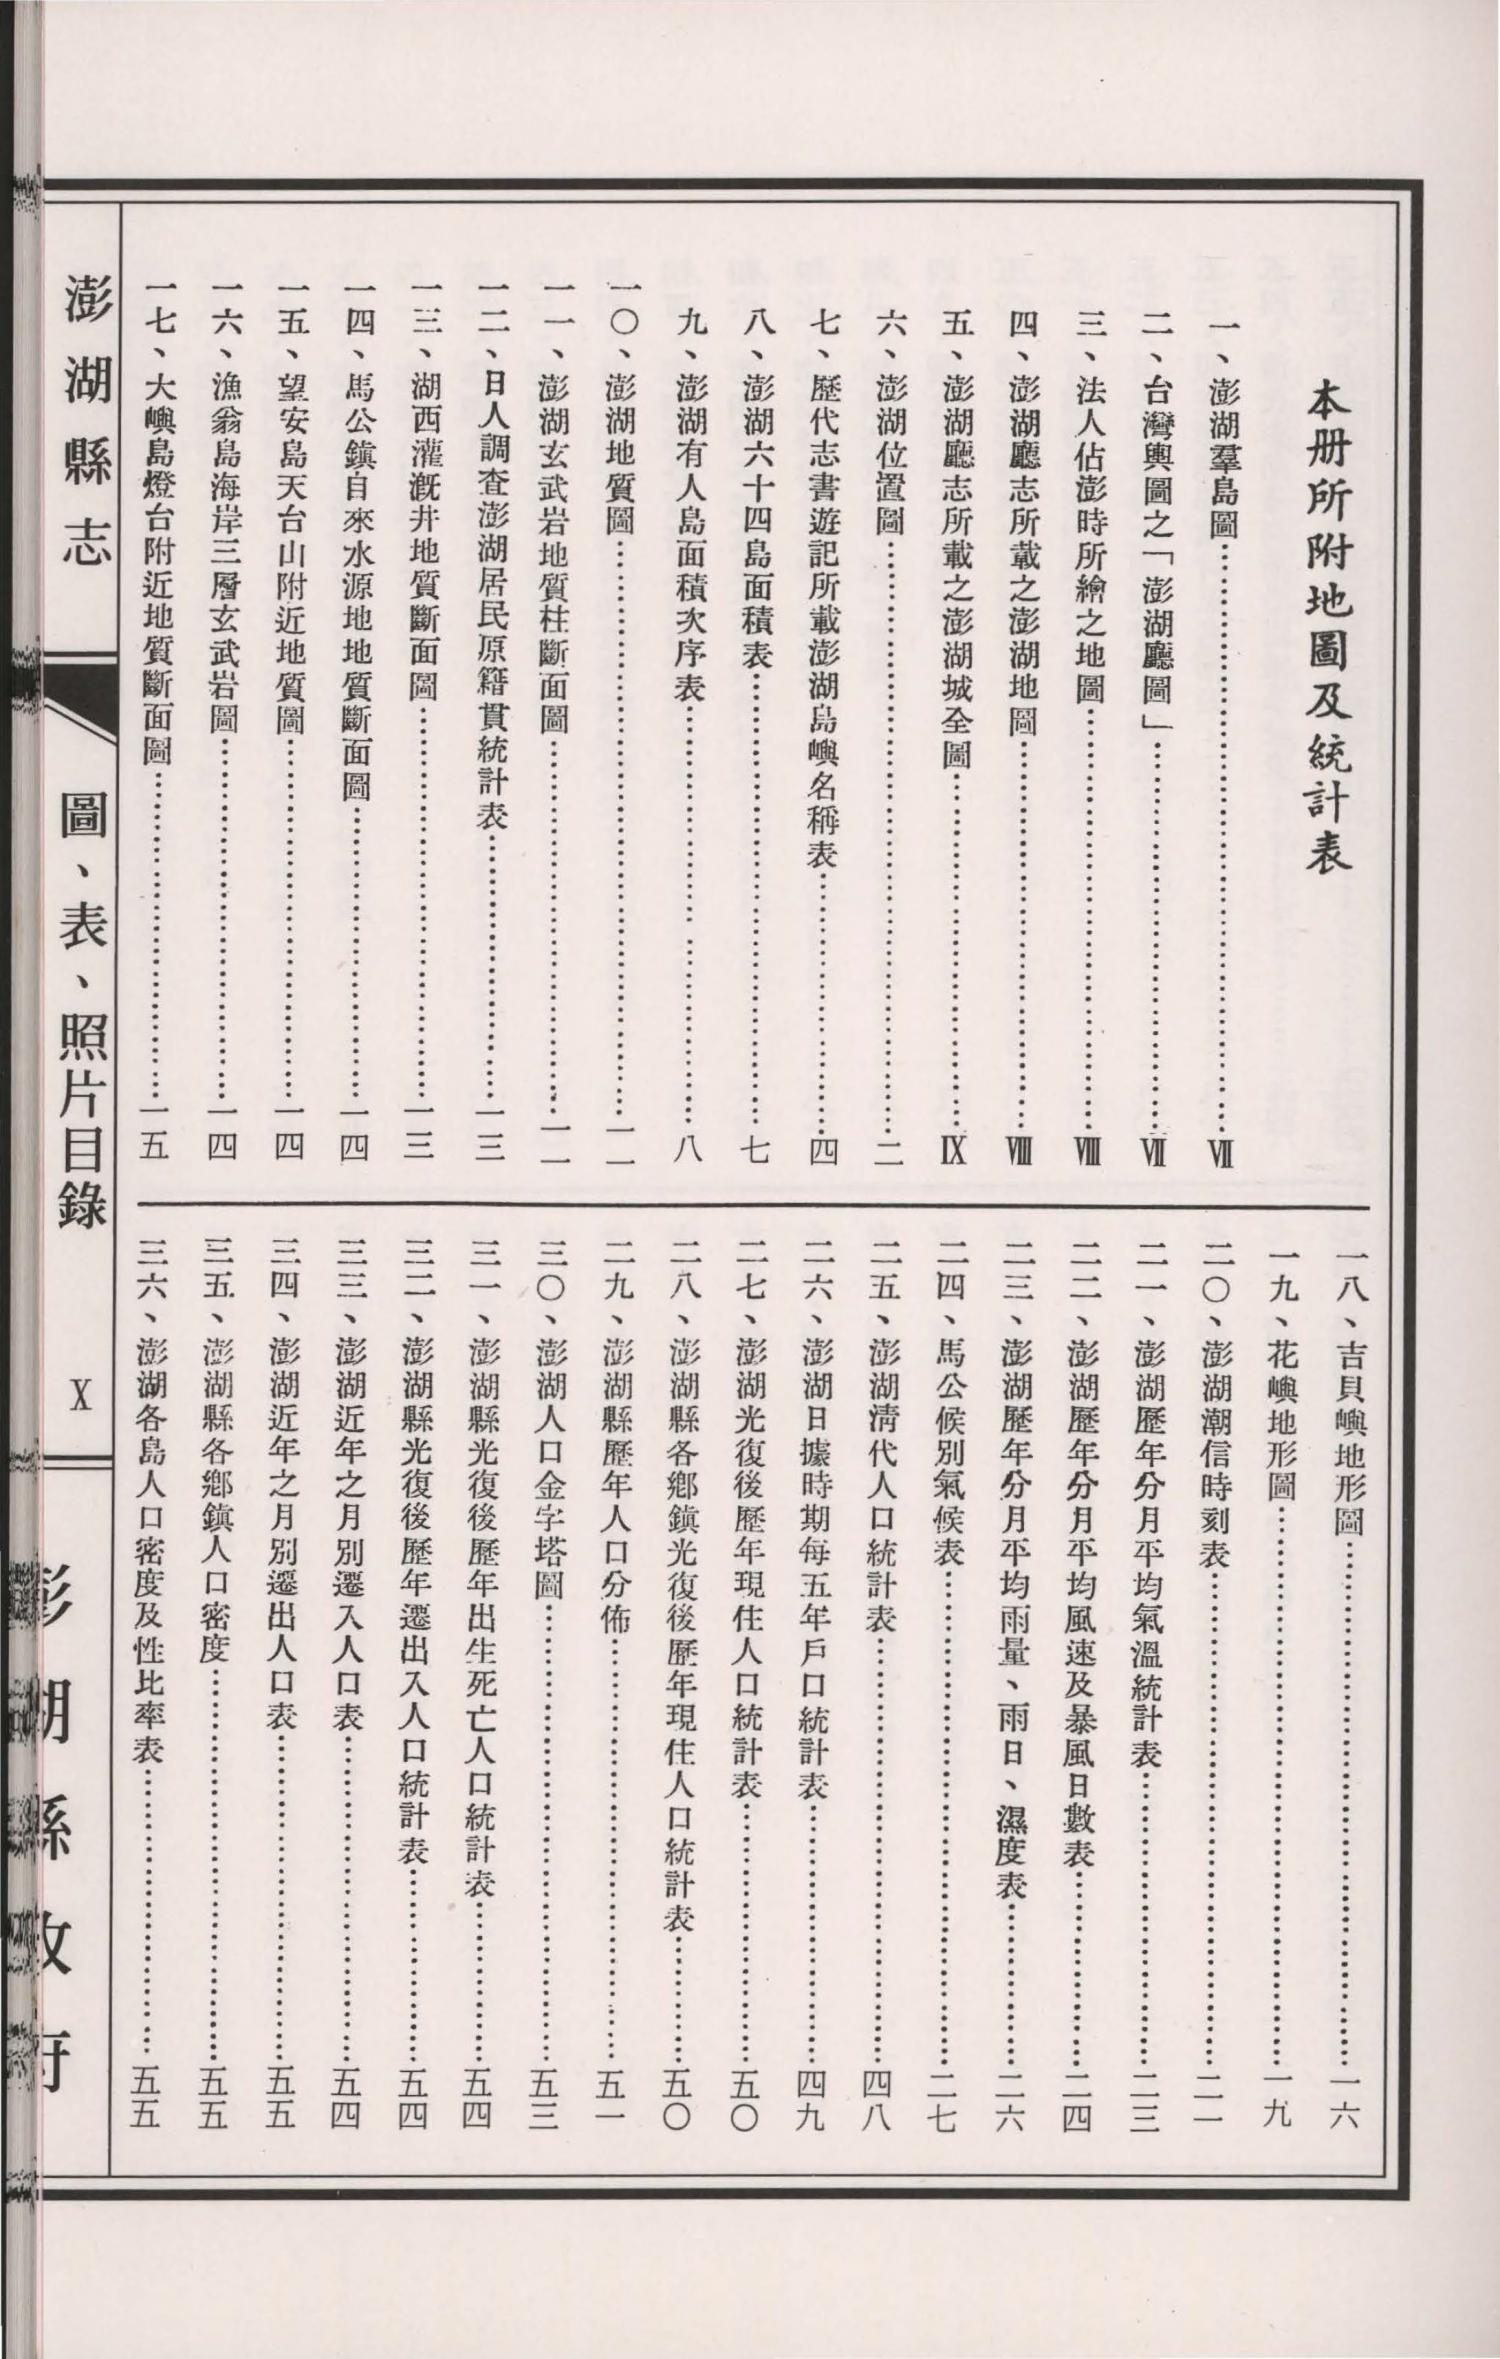 本册所附地圖及統計表
一、澎湖羣島圖…………Ⅶ
二、台灣輿圖之「澎湖廳圖」…………Ⅶ
三、法人佔澎時所繪之地圖…………Ⅷ
四、澎湖廳志所載之澎湖地圖…………Ⅷ
五、澎湖廳志所載之澎湖城全圖…………Ⅸ
六、澎湖位置圖…………二
七、歷代志書遊記所載澎湖島嶼名稱表…………四
八、澎湖六十四島面積表…………七
九、澎湖有人島面積次序表…………八
一〇、澎湖地質圖…………一一
一一、澎湖玄武岩地質柱斷面圖…………一一
一二、日人調查澎湖居民原籍貫統計表…………一三
一三、湖西灌溉井地質斷面圖…………一三
一四、馬公鎮自來水源地地質斷面圖…………一四
一五、望安島天台山附近地質圖…………一四
一六、漁翁島海岸三層玄武岩圖…………一四
一七、大嶼島燈台附近地質斷面圖…………一五
一八、吉貝嶼地形圖…………一六
一九、花嶼地形圖…………一九
二〇、澎湖潮信時刻表…………二一
二一、澎湖歷年分月平均氣溫統計表…………二三
二二、澎湖歷年分月平均風速及暴風日數表…………二四
二三、澎湖歷年分月平均雨量、雨日、濕度表…………二六
二四、馬公候別氣候表…………二七
二五、澎湖清代人口統計表…………四八
二六、澎湖日據時期每五年戶口統計表…………四九
二七、澎湖光復後歷年現住人口統計表…………五〇
二八、澎湖縣各鄉鎮光復後歷年現住人口統計表…………五〇
二九、澎湖縣歷年人口分佈…………五一
三〇、澎湖人口金字塔圖…………五三
三一、澎湖縣光復後歷年出生死亡人口統計表…………五四
三二、澎湖縣光復後歷年遷出入人口統計表…………五四
三三、澎湖近年之月別遷入人口表…………五四
三四、澎湖近年之月別遷出人口表…………五五
三五、澎湖縣各鄉鎮人口密度…………五五
三六、澎湖各島人口密度及性比率表…………五五
澎湖縣志
圖、表、照片目錄
X
澎湖縣政府